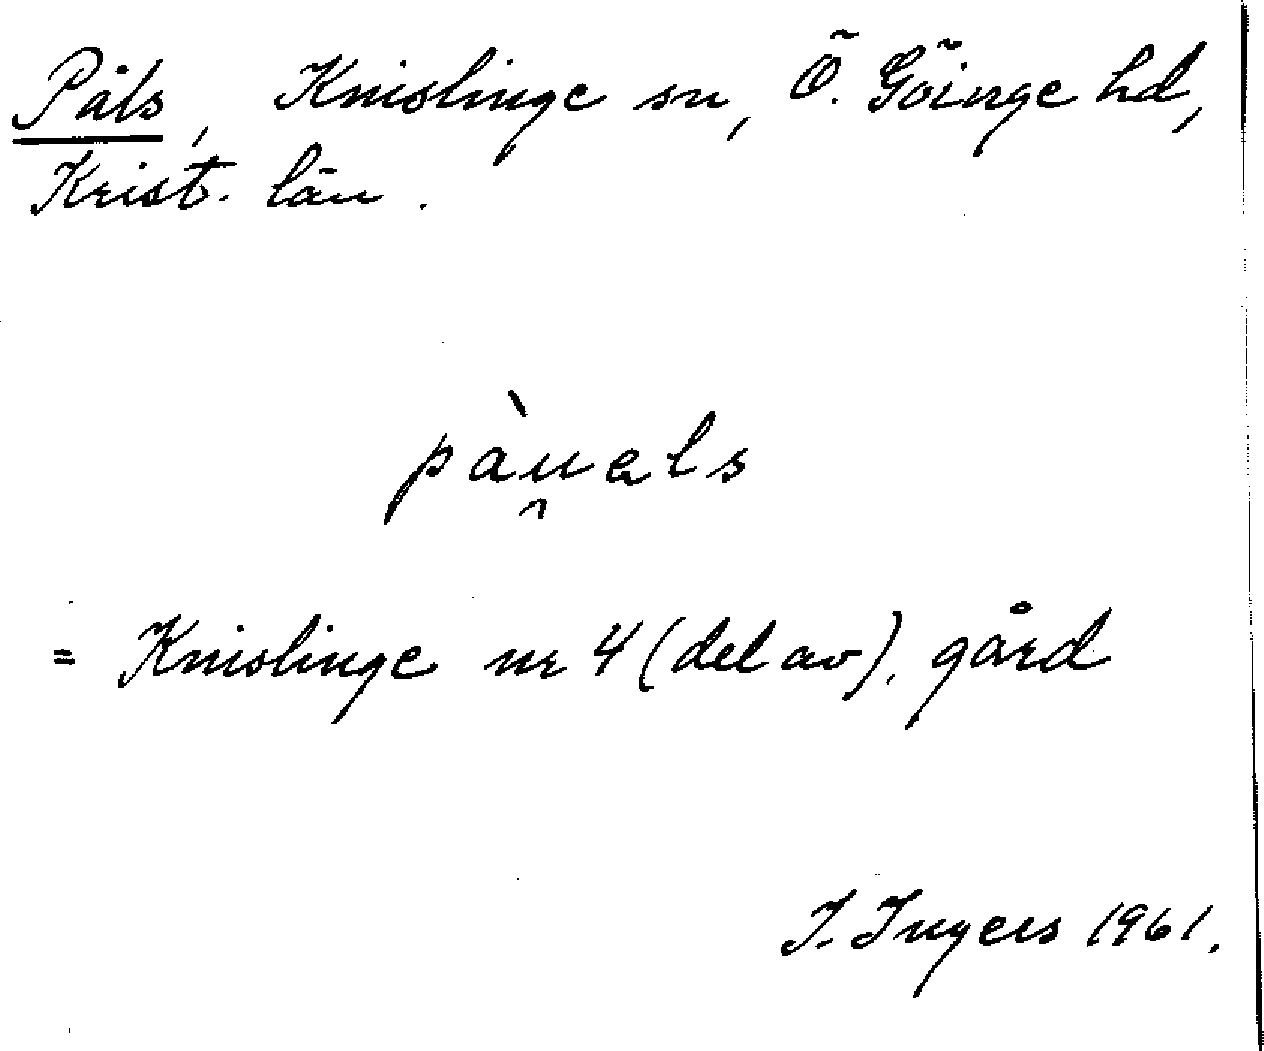 Påls, Knislinge sn, Ö. Göinge hd,
Krist. län.
pàu̯als
= Knislinge nr 4 (del av), gård
I. Ingers 1961.